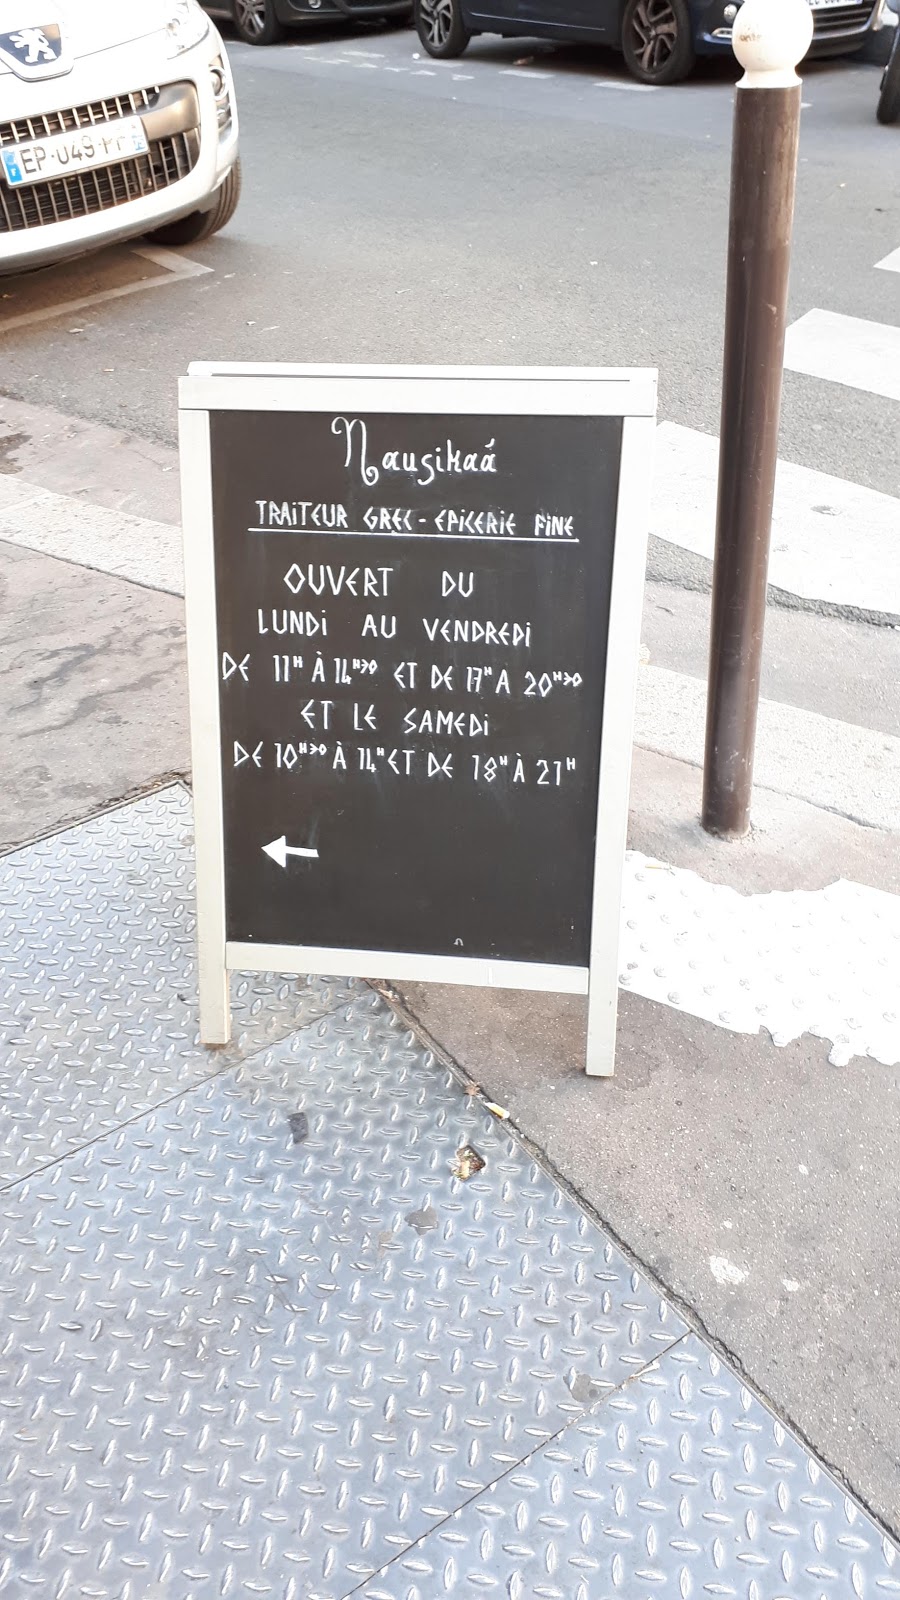 EP-049-
Nausikaá
TRAiTEUR GREC - EPICERIE FINE
OUVERT DU
LUNDi AU VENDREDi
DE 11H À 14H30 ET DE 17H A 20H30
ET LE SAMEDi
DE 10H30 À 14H ET DE 18H À 21H